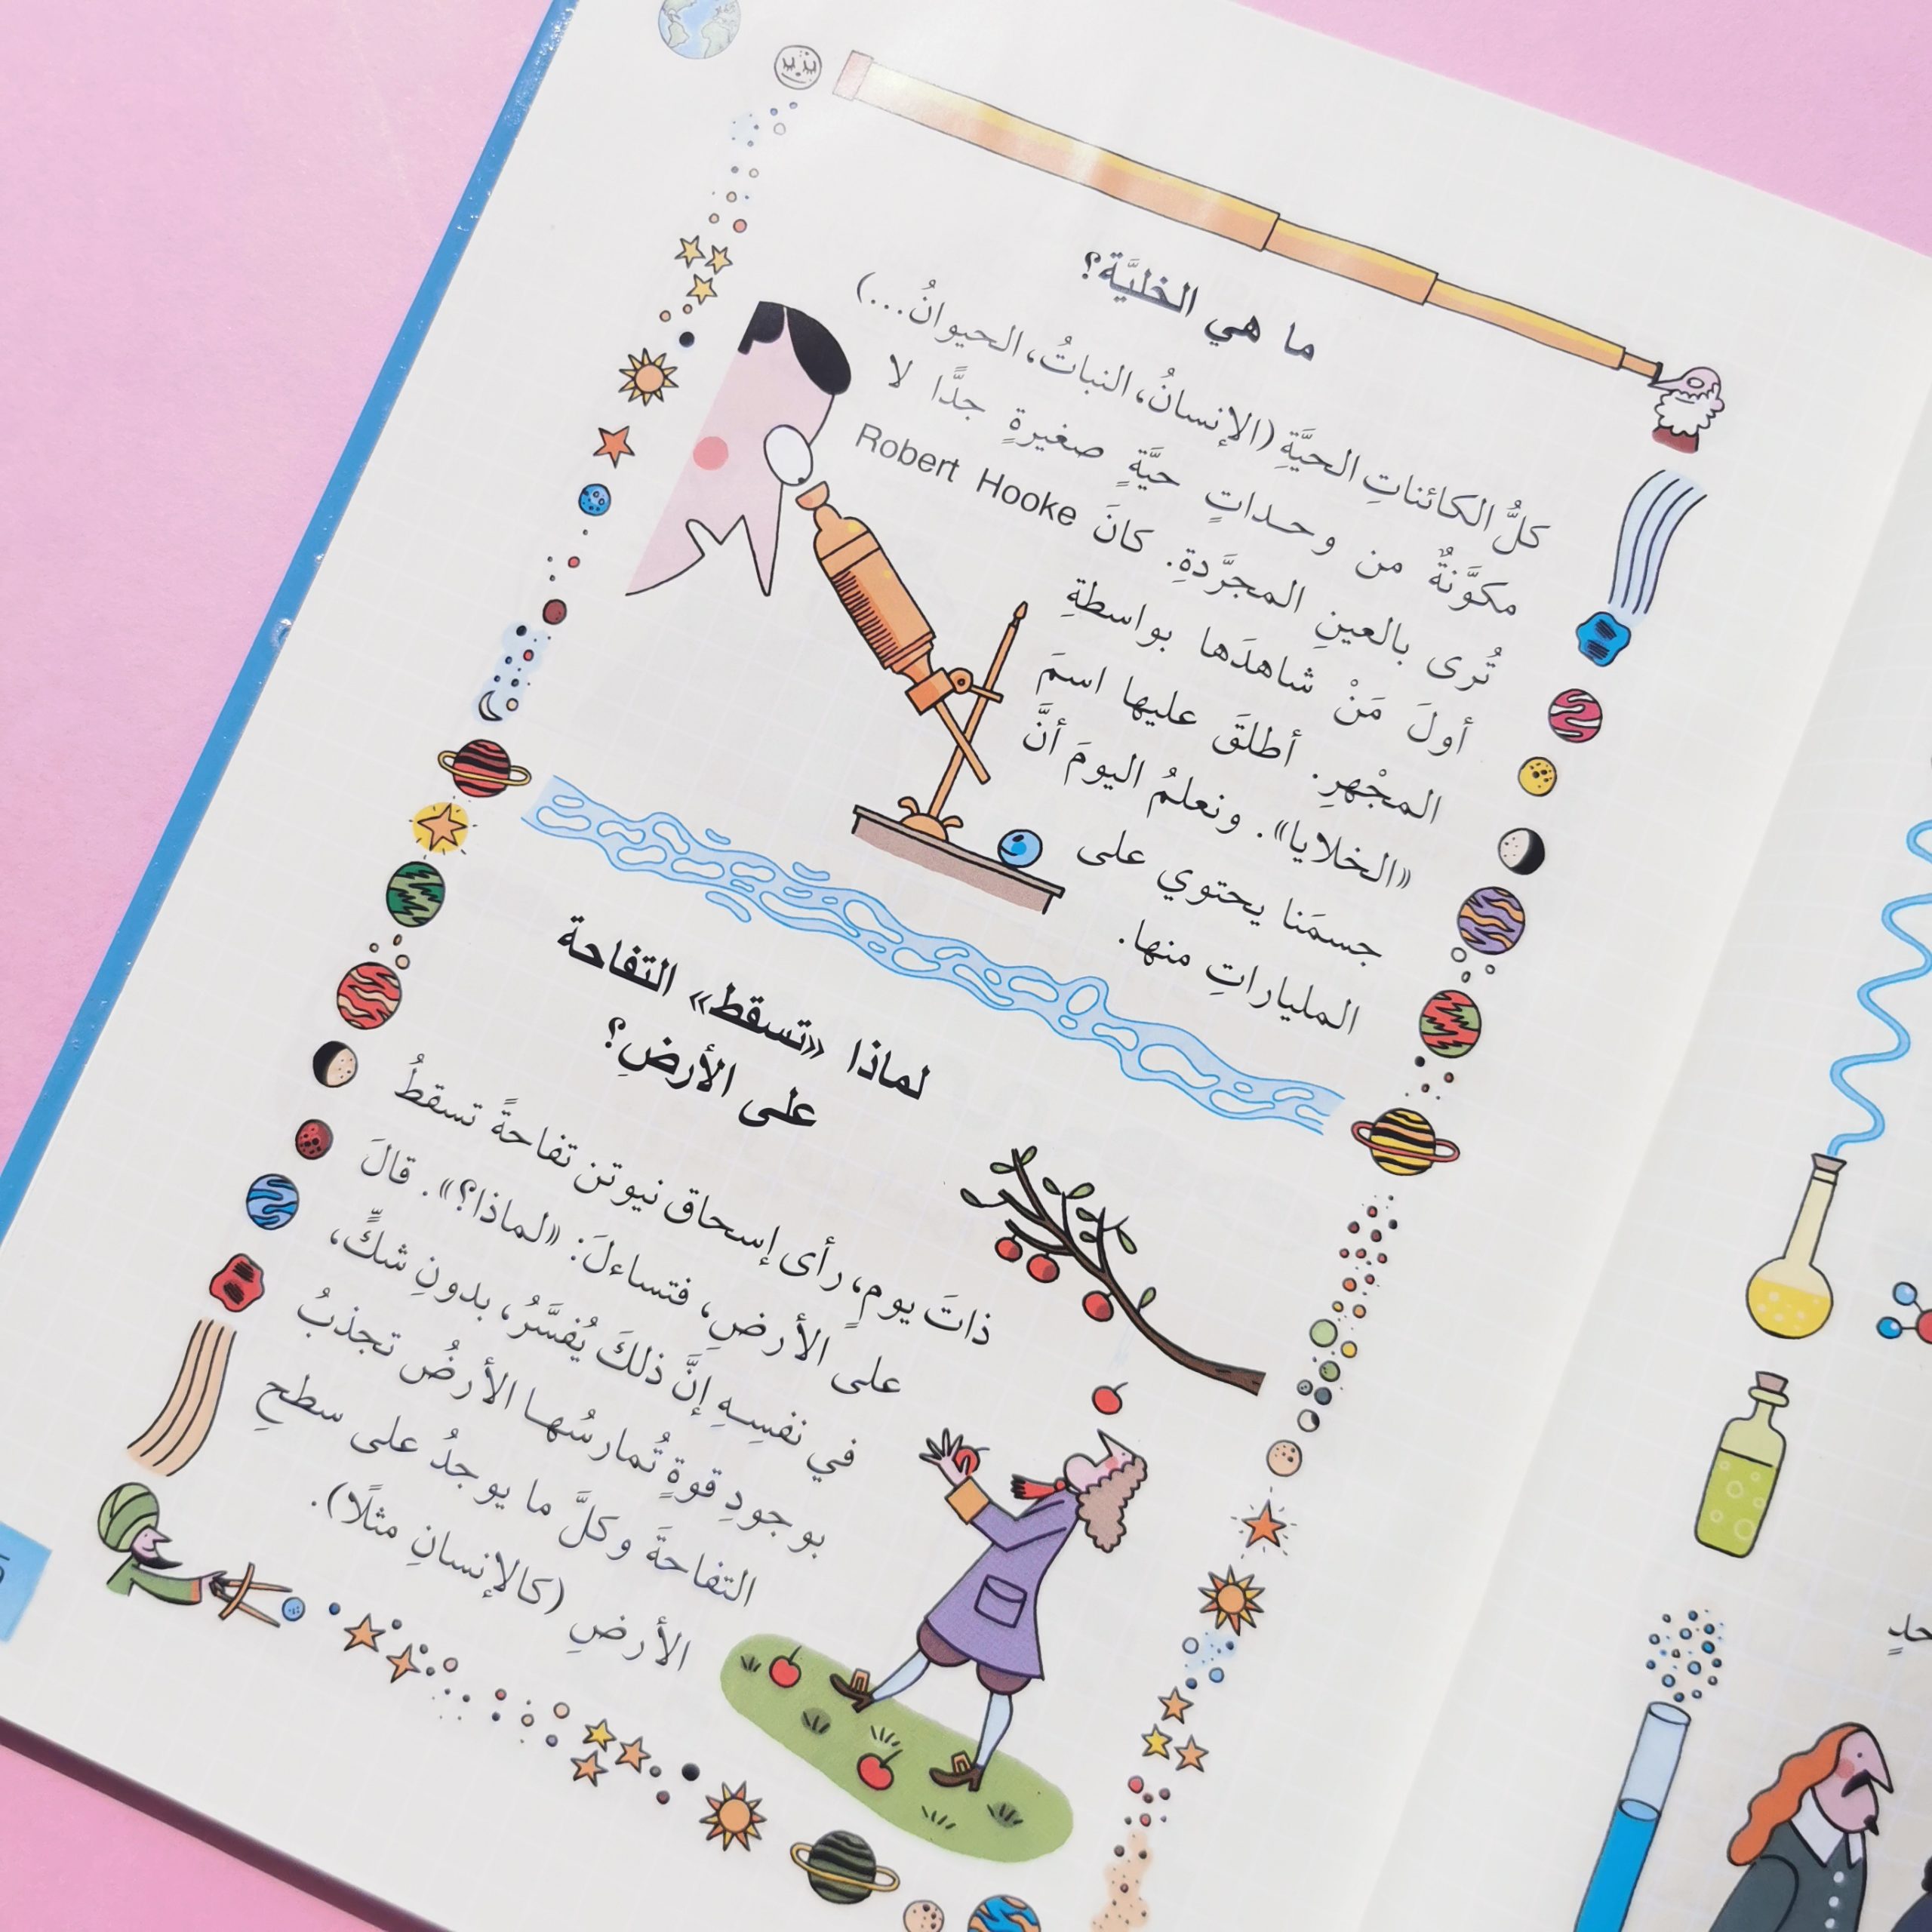 ما هي الخليَّة؟
كلُّ الكائناتِ الحيَّةِ (الإنسانُ، النباتُ، الحيوانُ...)
مكوَّنةٌ من وحداتٍ حيَّةٍ صغيرةٍ جدًّا لا
تُرى بالعينِ المجرَّدةِ. كانَ Robert Hooke
أولَ مَنْ شاهدَها بواسطةِ
المجْهرِ. أطلقَ عليها اسمَ
«الخلايا». ونعلمُ اليومَ أنَّ
جسمَنا يحتوي على
الملياراتِ منها.
لماذا «تسقط» التفاحة
على الأرضِ؟
ذاتَ يومٍ، رأى إسحاق نيوتن تفاحةً تسقطُ
على الأرضِ، فتساءلَ: «لماذا؟». قالَ
في نفسِهِ إنَّ ذلكَ يُفسَّرُ، بدونِ شكٍّ،
بوجودِ قوةٍ تُمارسُها الأرضُ تجذبُ
التفاحةَ وكلَّ ما يوجدُ على سطحِ
الأرضِ (كالإنسانِ مثلًا).